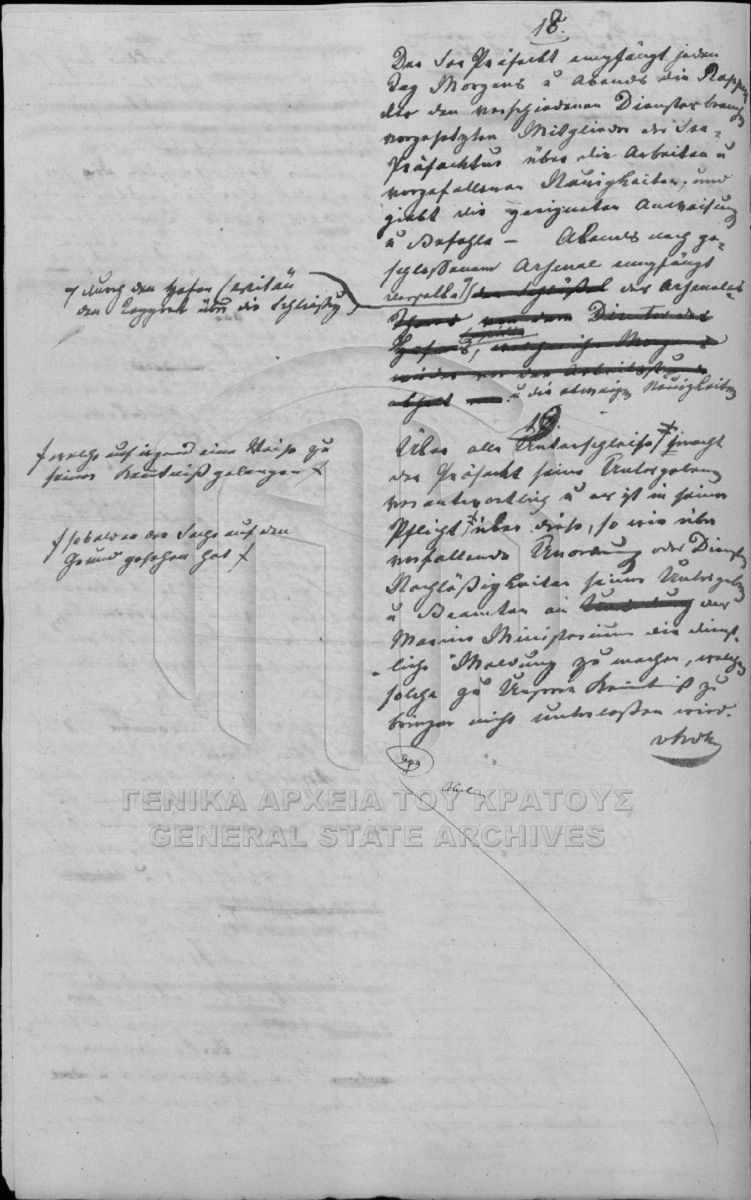 18.
Der See Präfeckt empfängt jeden
Tag Morgens u Abends die Rappor
der den verschiedenen Dienstesbranchen
vorgesetzten Mitglieder der See-
Präfecktur über die Arbeiten u
vorgefallenen Neuigkeiten, und
giebt die geeigneten Anweisung
u Befehle – Abends nach ge-
schloßenem Arsenal empfängt
derselbe den Schlüßel des Arsenales
von dem Director des
Hafens, welcher ihn Morgens
wieder vor den Arbeitsstunden
abholt u die etwaigen Neuigkeiten
durch den Hafen Capitän
den Rapport über die Schließung
19
Über alle Unterschleife macht
der Präfeckt seine Untergebenen
verantwortlich u er ist in seiner
Pflicht über diese, so wie über
vorfallende Unordnung oder Dienstes
Nachläßigkeiten seiner Untergebenen
u Beamten an das
Marine Ministerium die dienst-
liche Meldung zu machen, welches
solche zu Unserer Kenntniß zu
bringen nicht unterlaßen wird.
welche auf irgend eine Weise zu
seiner Kenntniß gelangen
sobald er der Sache auf den
Grund gesehen hat
ΓΕΝΙΚΑ ΑΡΧΕΙΑ ΤΟΥ ΚΡΑΤΟΥΣ
GENERAL STATE ARCHIVES